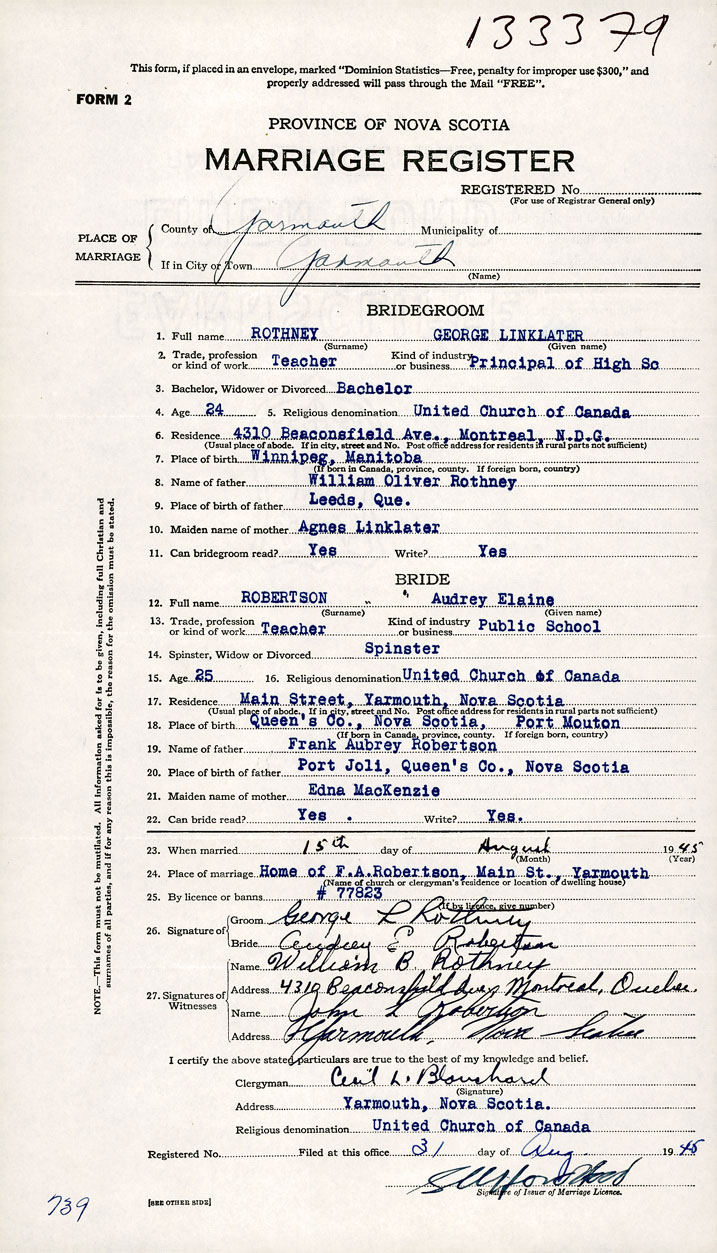 133379
This form, if placed in an envelope, marked “Dominion Statistics—Free, penalty for improper use $300,” and
properly addressed will pass through the Mail “FREE”.
FORM 2
PROVINCE OF NOVA SCOTIA
MARRIAGE REGISTER
REGISTERED No.
(For use of Registrar General only)
PLACE OF MARRIAGE
County of Yarmouth Municipality of
If in City or Town Yarmouth
(Name)
BRIDEGROOM
1. Full name ROTHNEY GEORGE LINKLATER
(Surname) (Given name)
2. Trade, profession or kind of work Teacher Kind of industry or business Principal of High Sc
3. Bachelor, Widower or Divorced Bachelor
4. Age 24 5. Religious denomination United Church of Canada
6. Residence 4310 Beaconsfield Ave., Montreal, N.D.G.
(Usual place of abode. If in city, street and No. Post office address for residents in rural parts not sufficient)
7. Place of birth Winnipeg, Manitoba
(If born in Canada, province, county. If foreign born, country)
8. Name of father William Oliver Rothney
9. Place of birth of father Leeds, Que.
10. Maiden name of mother Agnes Linklater
11. Can bridegroom read? Yes Write? Yes
BRIDE
12. Full name ROBERTSON Audrey Elaine
(Surname) (Given name)
13. Trade, profession or kind of work Teacher Kind of industry or business Public School
14. Spinster, Widow or Divorced Spinster
15. Age 25 16. Religious denomination United Church of Canada
17. Residence Main Street, Yarmouth, Nova Scotia
(Usual place of abode. If in city, street and No. Post office address for residents in rural parts not sufficient)
18. Place of birth Queen's Co., Nova Scotia, Port Mouton
(If born in Canada, province, county. If foreign born, country)
19. Name of father Frank Aubrey Robertson
20. Place of birth of father Port Joli, Queen's Co., Nova Scotia
21. Maiden name of mother Edna MacKenzie
22. Can bride read? Yes . Write? Yes.
23. When married 15th day of August 1945
(Month) (Year)
24. Place of marriage Home of F.A.Robertson, Main St., Yarmouth
(Name of church or clergyman's residence or location of dwelling house)
25. By licence or banns # 77823
(If by licence, give number)
26. Signature of
Groom George L Rothney
Bride Audrey E Robertson
27. Signatures of Witnesses
Name William B. Rothney
Address 4310 Beaconsfield Ave, Montreal, Quebec.
Name John L Robertson
Address Yarmouth, Nova Scotia
I certify the above stated particulars are true to the best of my knowledge and belief.
Clergyman Cecil L. Blanchard
(Signature)
Address Yarmouth, Nova Scotia.
Religious denomination United Church of Canada
Registered No. Filed at this office 31 day of Aug 1945
Signature of Issuer of Marriage Licence.
739
[SEE OTHER SIDE]
NOTE.—This form must not be mutilated. All information asked for is to be given, including full Christian and
surnames of all parties, and if for any reason this is impossible, the reason for the omission must be stated.